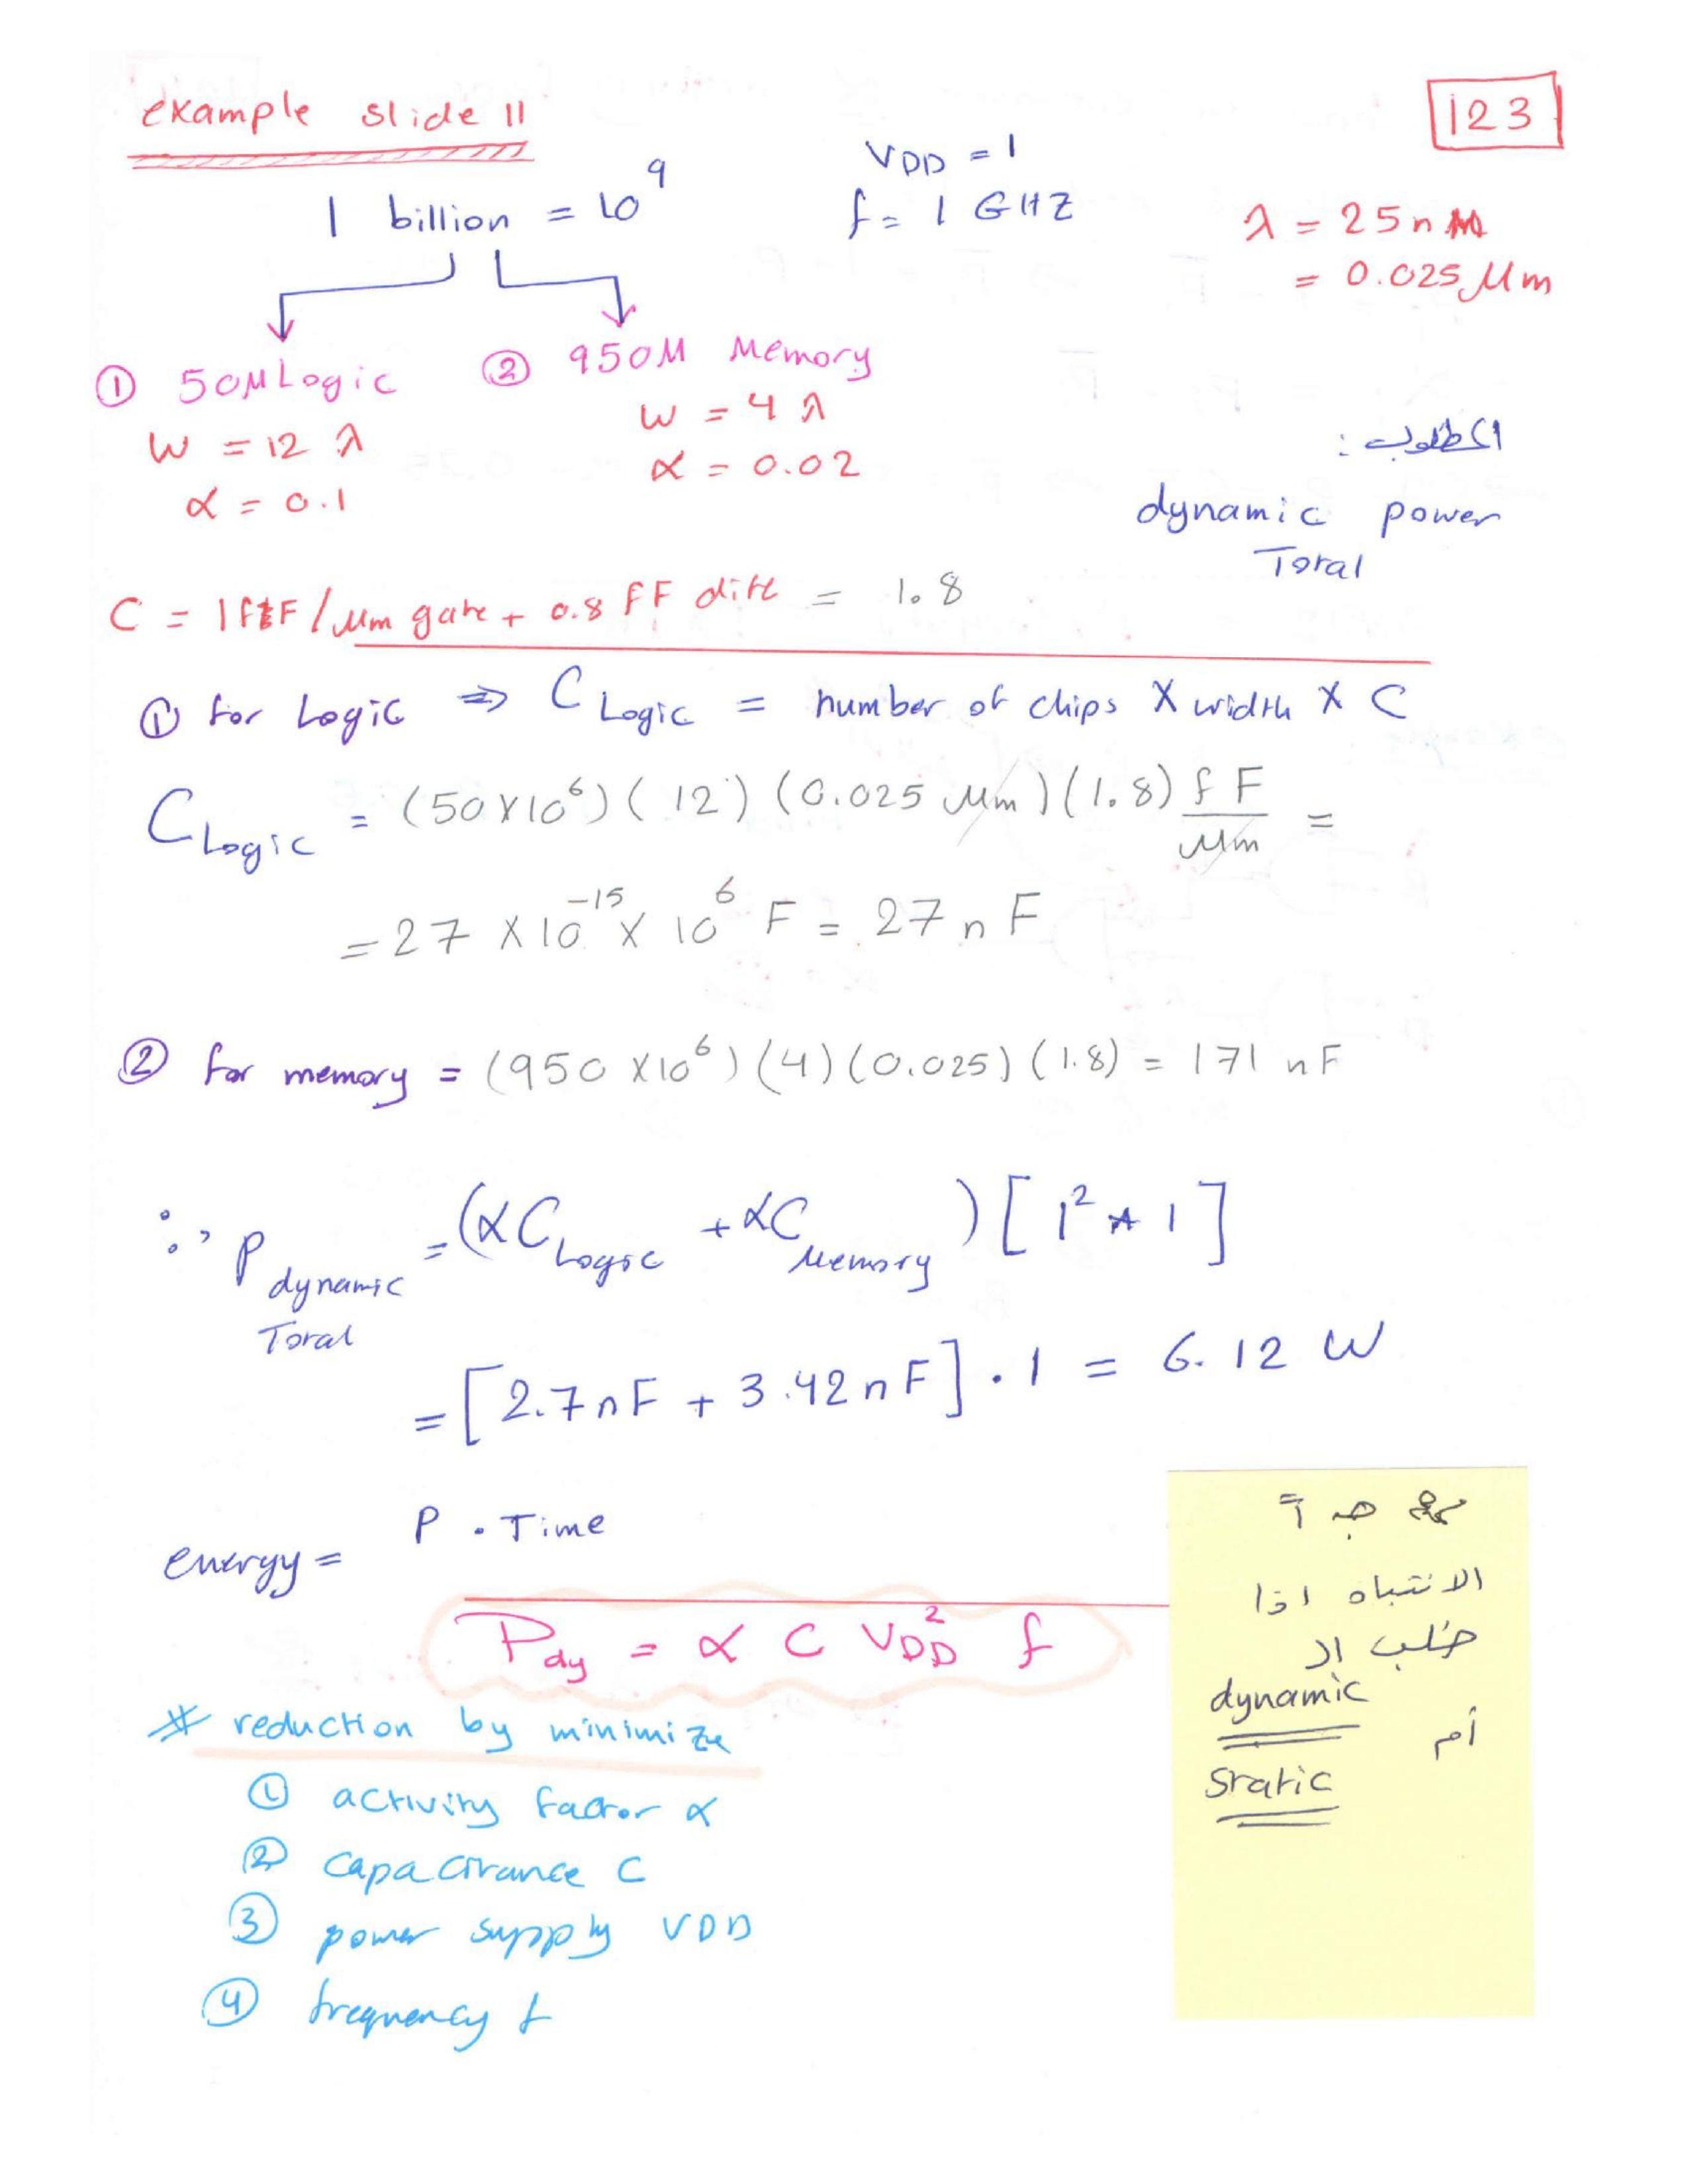 example slide 11
123
1 billion = 10^9
VDD = 1
f = 1 GHZ
λ = 25 nm
= 0.025 Mm
① 50M Logic
W = 12 λ
α = 0.1
② 950M Memory
W = 4 λ
α = 0.02
المطلوب :
dynamic power
Total
C = 1 fF / Mm gate + 0.8 fF diff = 1.8
① for Logic ⇒ C Logic = number of chips X width X C
C Logic = (50 X 10^6) ( 12 ) (0.025 Mm) (1.8) fF/Mm =
= 27 X 10^-15 X 10^6 F = 27 n F
② for memory = (950 X10^6) (4) (0.025) (1.8) = 171 nF
∴ P dynamic Total = (αC Logic + αC Memory) [ 1^2 * 1 ]
= [ 2.7 nF + 3.42 nF ] . 1 = 6.12 W
energy = P . Time
Pdy = α C VDD^2 f
* reduction by minimize
① activity factor α
② capacitance C
③ power supply VDD
④ frequency f
الانتباه اذا
طلب ال
dynamic
أم
Static